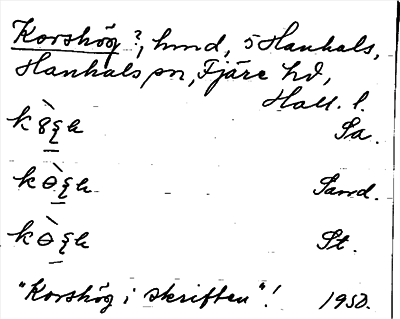 Korshög ?, hmd, 5 Hanhals,
Hanhals sn, Fjäre hd,
Hall. l.
Sa.
Sand.
St.
"Korshög i skriften"! 1950.